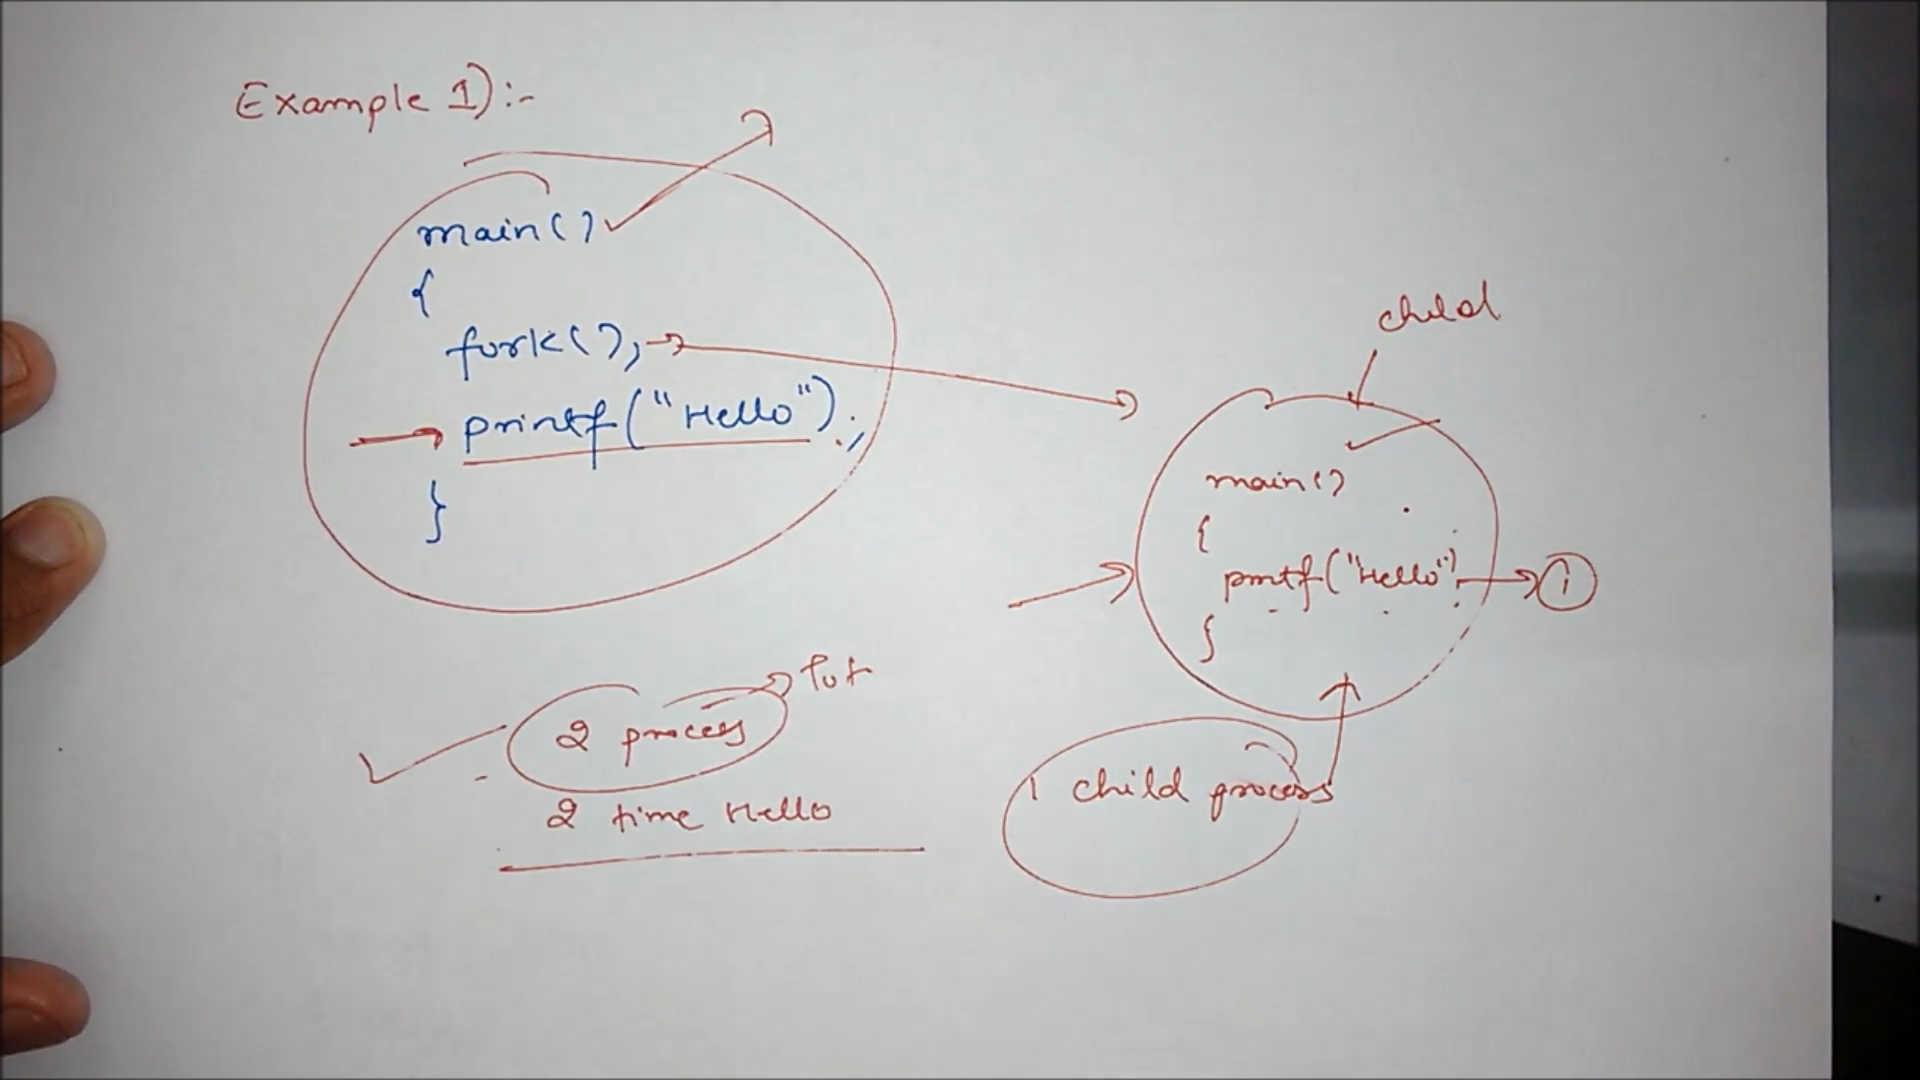 Example 1):-
main()
{
fork();
printf("Hello");
}
child
main()
{
printf("Hello") 1
}
2 process Tot
2 time Hello
1 child process